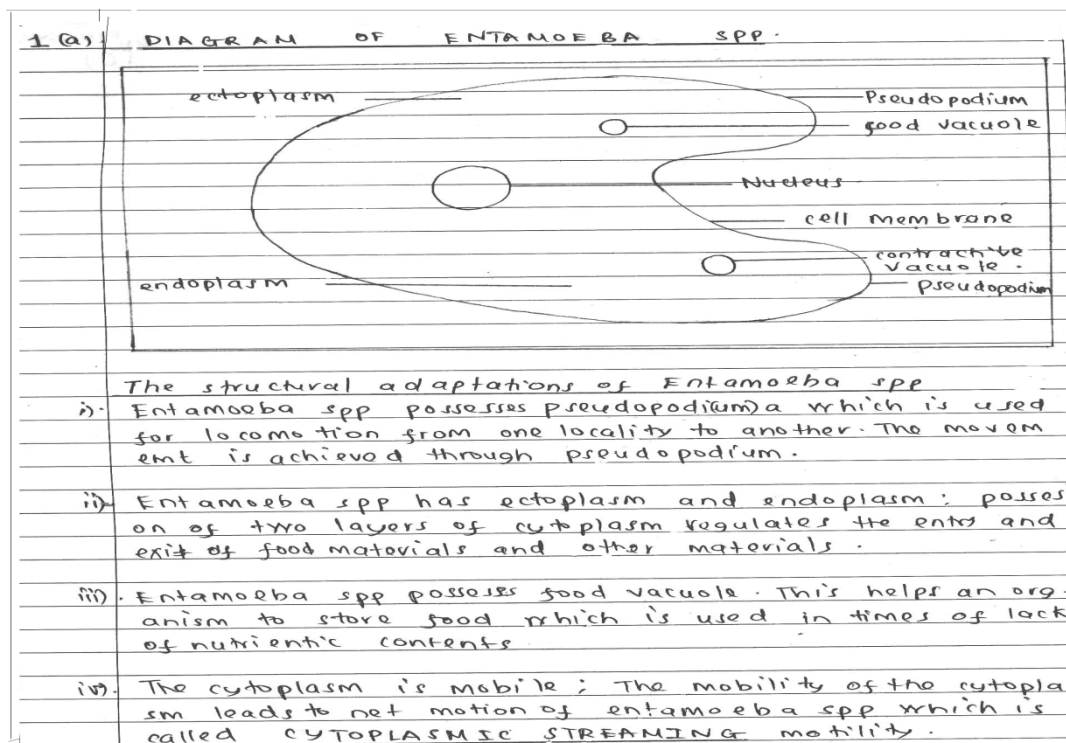 1 (a) DIAGRAM OF ENTAMOEBA SPP.
ectoplasm
Pseudopodium
food vacuole
Nucleus
cell membrane
contractile
vacuole.
endoplasm
pseudopodium
The structural adaptations of Entamoeba spp
i). Entamoeba spp possesses pseudopodi(um)a which is used
for locomotion from one locality to another. The movem
emt is achieved through pseudopodium.
ii) Entamoeba spp has ectoplasm and endoplasm; posses
on of two layers of cytoplasm regulates the entry and
exit of food materials and other materials.
iii). Entamoeba spp possesses food vacuole. This helps an org.
anism to store food which is used in times of lack
of nutrientic contents
iv). The cytoplasm is mobile; The mobility of the cytopla
sm leads to net motion of entamoeba spp which is
called CYTOPLASMIC STREAMING motility.